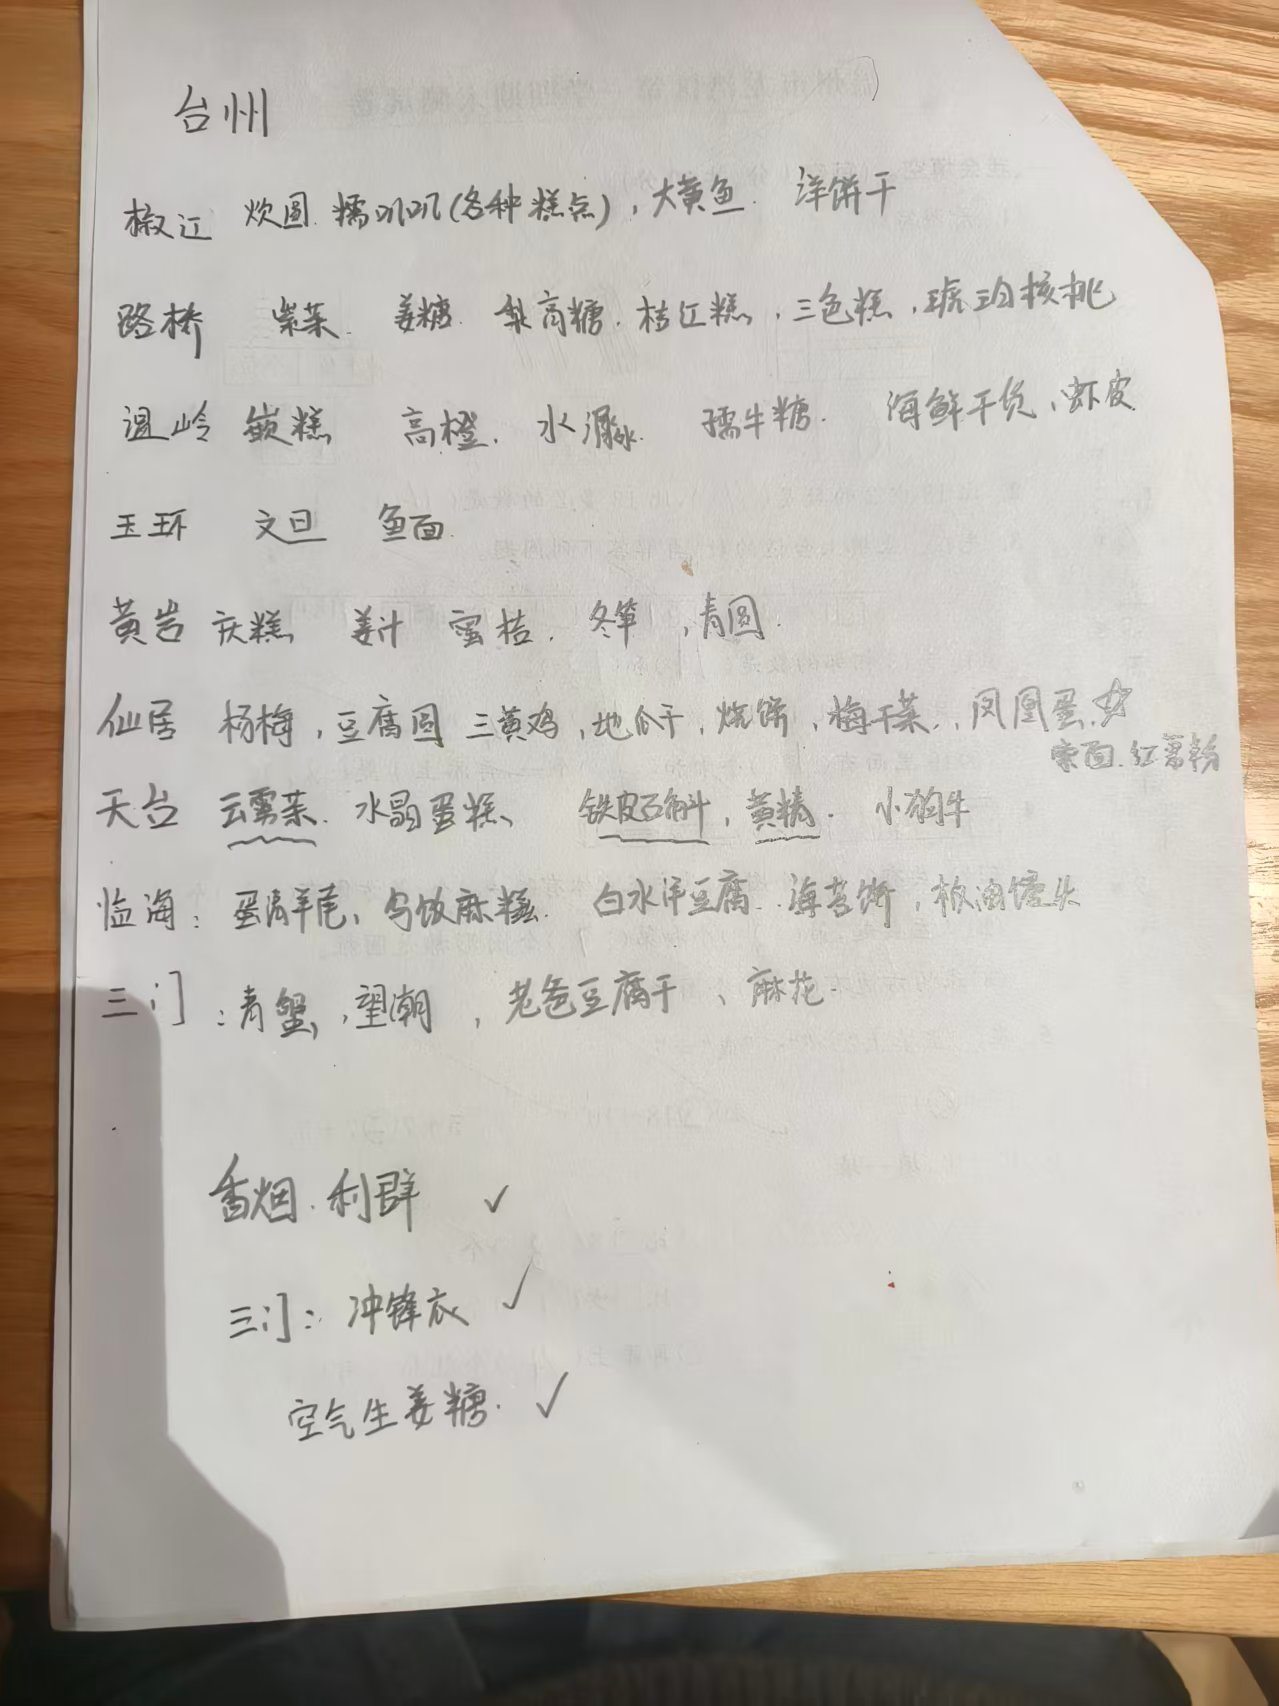 台州
椒江 炊圆 糯叽叽(各种糕点),大黄鱼 洋饼干
路桥 紫菜 姜糖 梨高糖 桔红糕,三色糕,琥珀核桃
温岭 嵌糕 高橙 水潺 孺牛糖 海鲜干货、虾皮
玉环 文旦 鱼面
黄岩 灰糕 姜汁 蜜桔 冬笋,青圆
仙居 杨梅,豆腐圆 三黄鸡,地瓜干,烧饼,梅干菜,凤凰蛋
索面 红薯粉
天台 云雾茶 水晶蛋糕 铁皮石斛,黄精 小狗牛
临海:蛋清羊尾,乌饭麻糍 白水洋豆腐 海苔饼,板油馒头
三门:青蟹,望潮,老爸豆腐干、麻花
香烟 利群 ✓
三门:冲锋衣 ✓
空气生姜糖 ✓